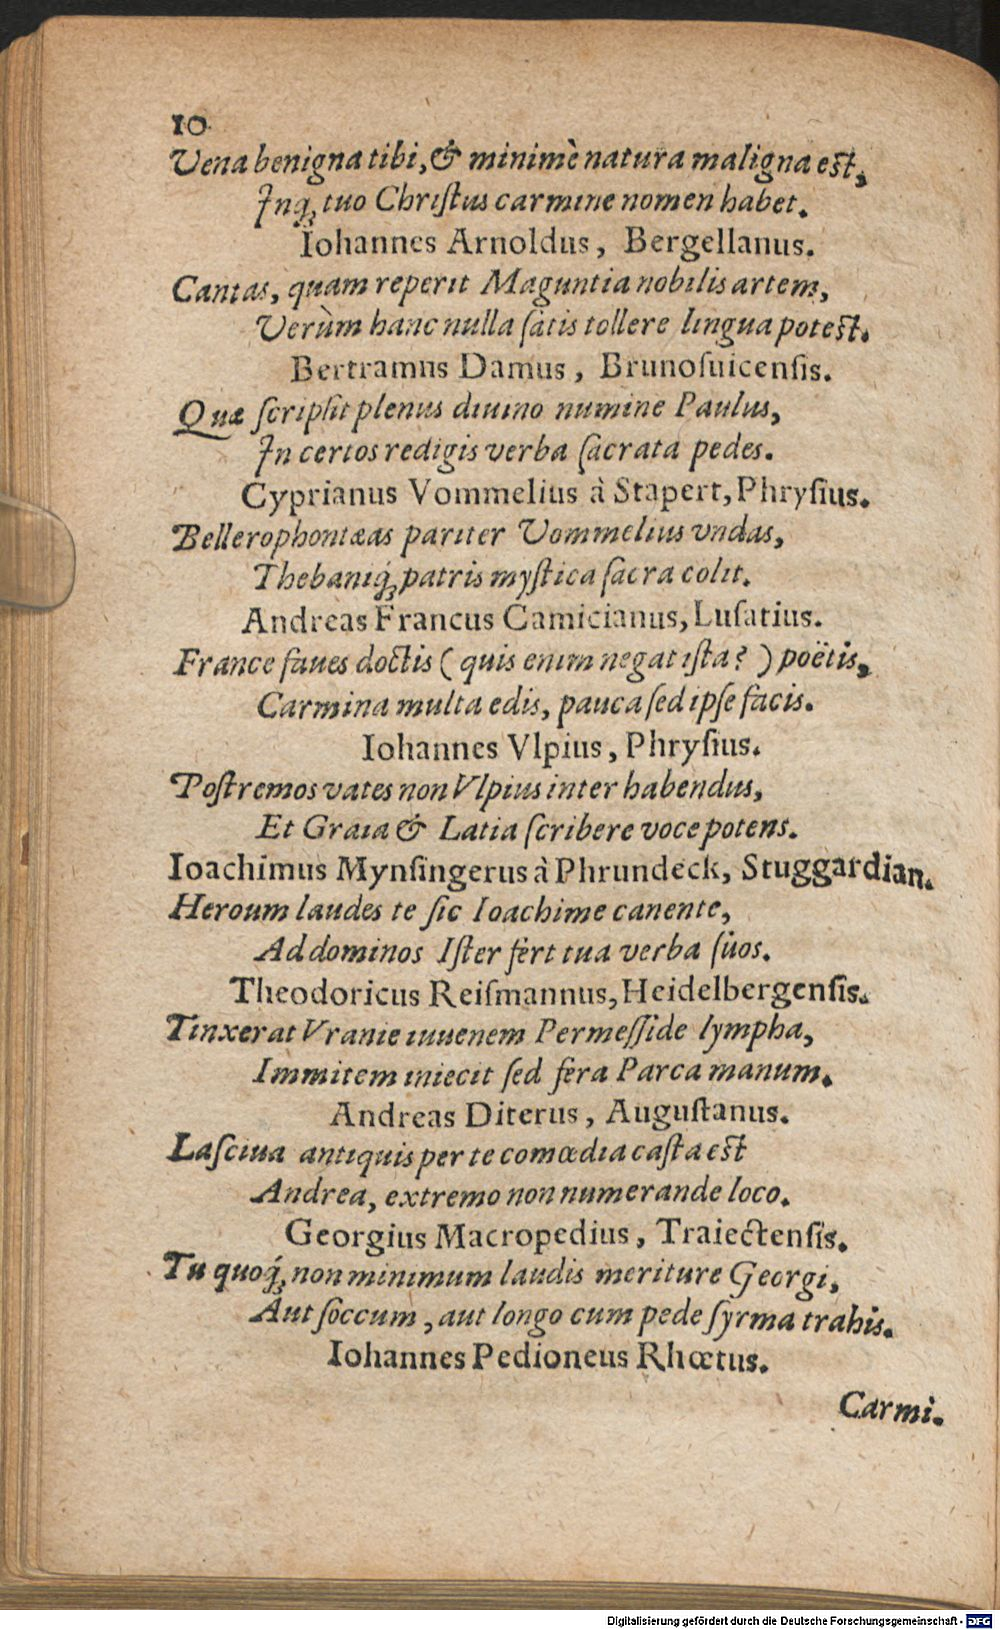 10
Vena benigna tibi, & minimè natura maligna est,
Inq́; tuo Chriſtus carmine nomen habet.
Iohannes Arnoldus, Bergellanus.
Cantas, quam reperit Maguntia nobilis artem,
Verùm hanc nulla ſatis tollere lingua potest.
Bertramus Damus, Brunoſuicenſis.
Quæ ſcripſit plenus diuino numine Paulus,
In certos redigis verba ſacrata pedes.
Cyprianus Vommelius à Stapert, Phryſius.
Bellerophontæas pariter Vommelius vndas,
Thebaniq́; patris myſtica ſacra colit.
Andreas Francus Camicianus, Luſatius.
France faues doctis (quis enim negat iſta?) poëtis,
Carmina multa edis, pauca ſed ipſe facis.
Iohannes Vlpius, Phryſius.
Poſtremos vates non Vlpius inter habendus,
Et Graia & Latia ſcribere voce potens.
Ioachimus Mynſingerus à Phrundeck, Stuggardian.
Heroum laudes te ſic Ioachime canente,
Ad dominos Iſter fert tua verba ſuos.
Theodoricus Reiſmannus, Heidelbergenſis.
Tinxerat Vranie iuuenem Permeſſide lympha,
Immitem iniecit ſed fera Parca manum.
Andreas Diterus, Auguſtanus.
Laſciua antiquis per te comœdia caſta est
Andrea, extremo non numerande loco.
Georgius Macropedius, Traiectenſis.
Tu quoq́; non minimum laudis meriture Georgi,
Aut ſoccum, aut longo cum pede ſyrma trahis.
Iohannes Pedioneus Rhœtus.
Carmi.
Digitalisierung gefördert durch die Deutsche Forschungsgemeinschaft - DFG